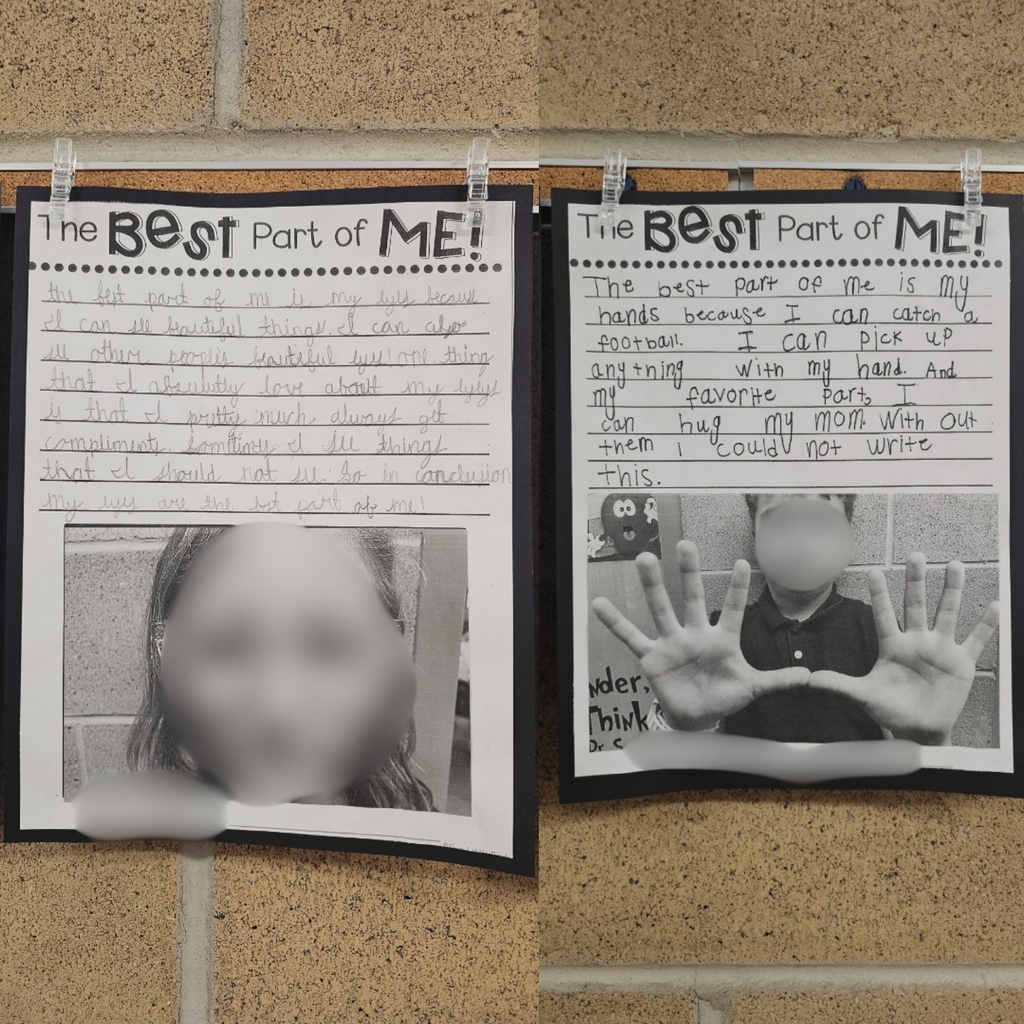 The BEST Part of ME!
the best part of me is my eyes because
I can see beautiful things. I can also
see other people's beautiful eyes! one thing
that I absolutly love about my eyes
is that I pretty much always get
compliments. Sometimes I see things
that I should not see. So in conclusion
my eyes are the best part of me!
The BEST Part of ME!
The best part of me is my
hands because I can catch a
football. I can pick up
anything with my hand. And
my favorite part, I
can hug my mom. With out
them i could not write
this.
nder,
Think
Dr. S